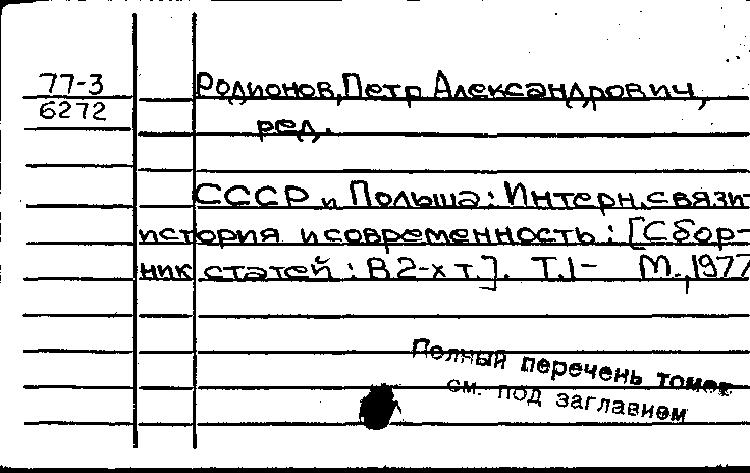 77-3
6272
Родионов, Петр Александрович,
ред.
СССР и Польша: Интерн. связи-
история и современность: [Сбор-
ник статей: В 2-х т.]. Т.1- М., 1977
Полный перечень томов
см. под заглавием